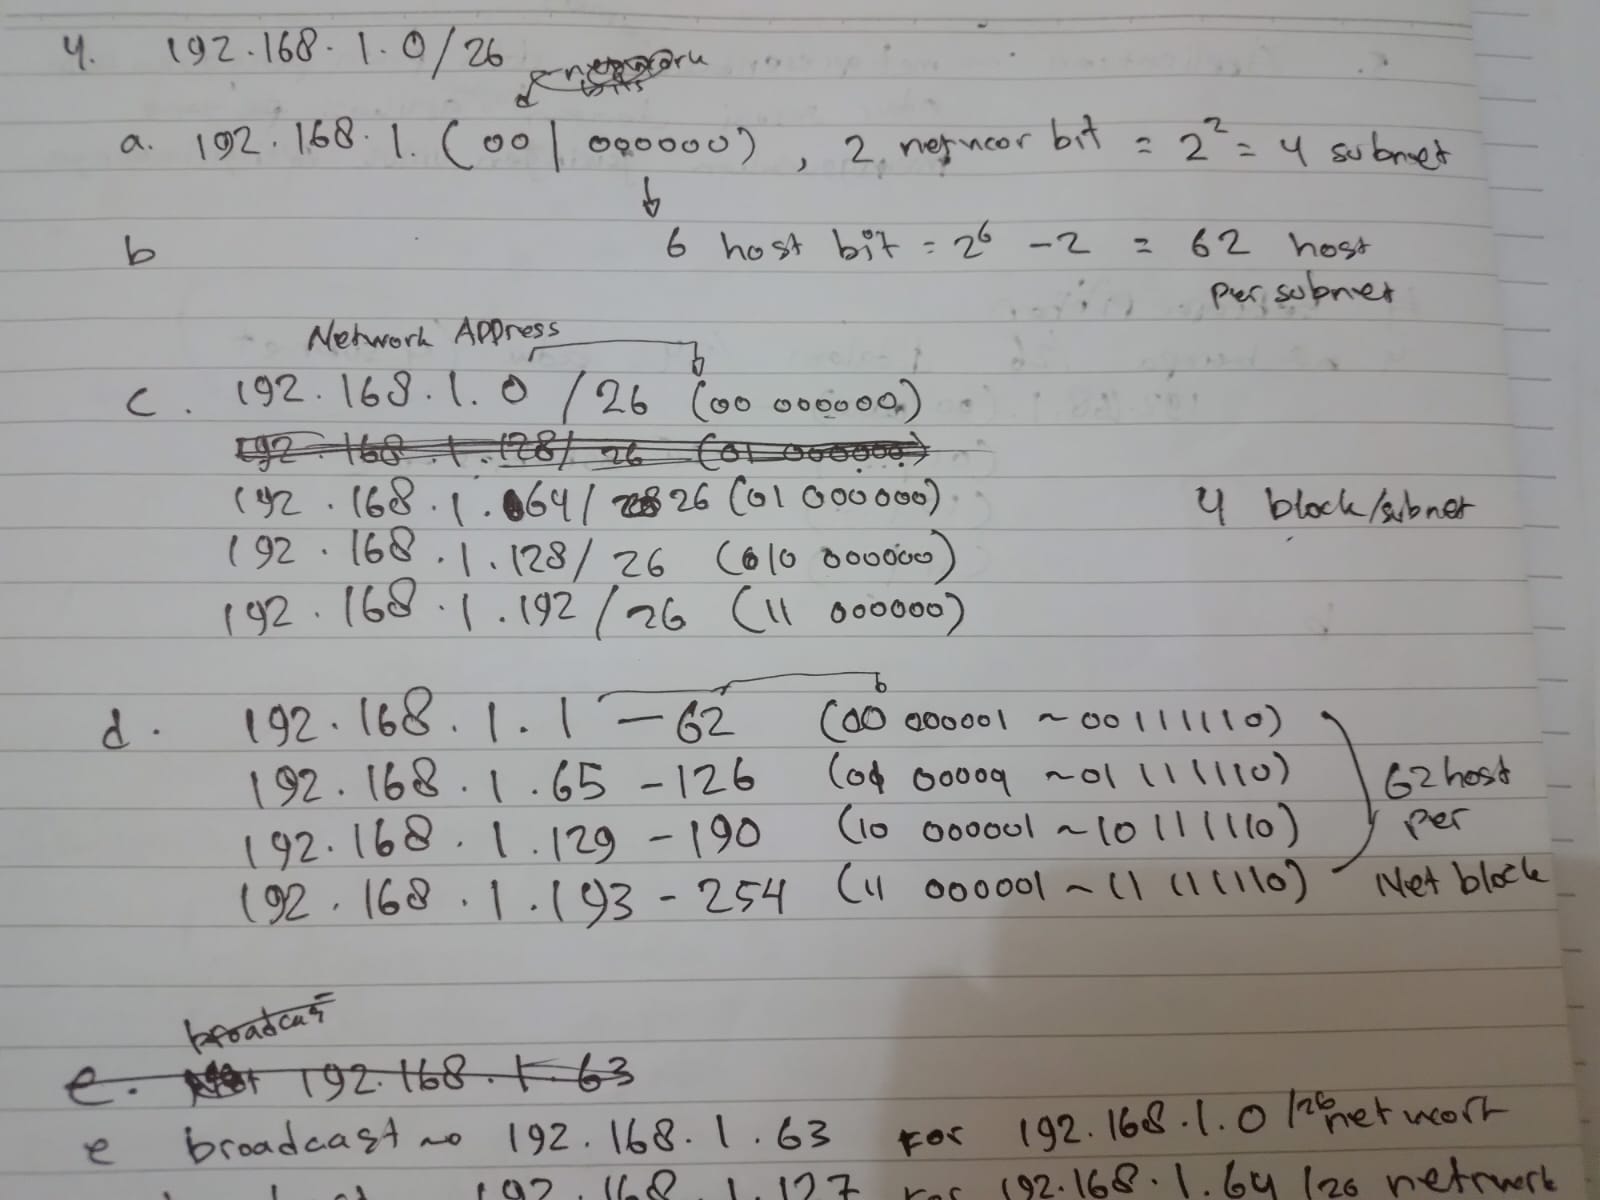 4. 192.168.1.0/26
network bits
a. 192.168.1.(00|000000), 2 networ bit = 2² = 4 subnet
b 6 host bit = 2⁶ -2 = 62 host
per subnet
Network Address
c. 192.168.1.0 /26 (00 000000)
192.168.1.128/26 (01 000000)
192.168.1.64/26 (01 000000) 4 block/subnet
192.168.1.128/26 (10 000000)
192.168.1.192/26 (11 000000)
d. 192.168.1.1 - 62 (00 000001 ~ 00 111110)
192.168.1.65 - 126 (01 00001 ~ 01 111110) 62 host
192.168.1.129 - 190 (10 000001 ~ 10 111110) per
192.168.1.193 - 254 (11 000001 ~ 11 111110) Net block
broadcast
e. 192.168.1.63
e broadcast no 192.168.1.63 For 192.168.1.0 /26 network
192.168.1.127 For 192.168.1.64 /26 network